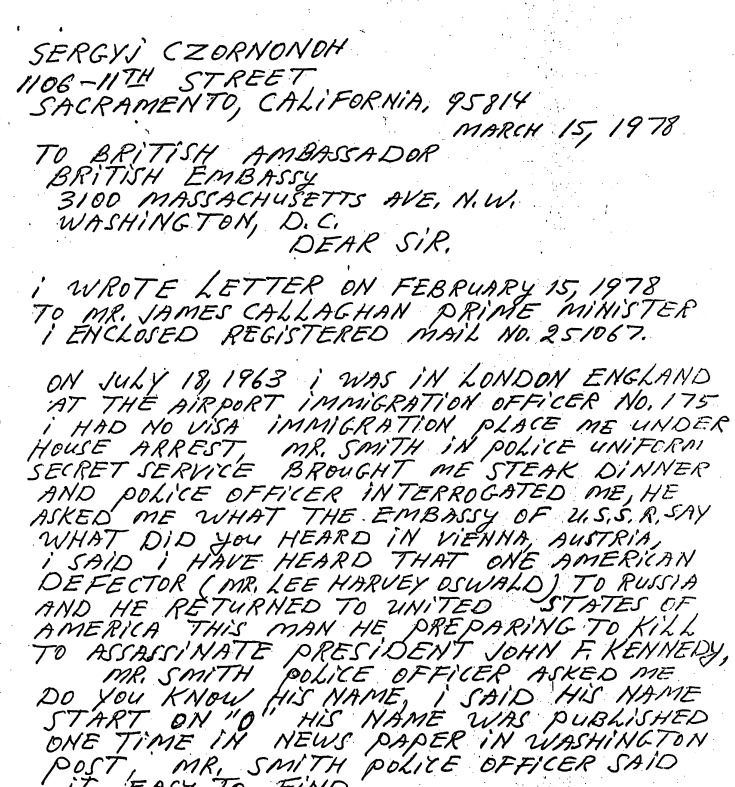 SERGYJ CZORNONOH
1106-11TH STREET
SACRAMENTO, CALiFORNiA, 95814
MARCH 15, 1978
TO BRiTiSH AMBASSADOR
BRiTiSH EMBASSY
3100 MASSACHUSETTS AVE, N.W.
WASHiNGTON, D.C.
DEAR SiR.
i WROTE LETTER ON FEBRUARY 15, 1978
TO MR. JAMES CALLAGHAN PRiME MiNiSTER
i ENCLOSED REGiSTERED MAiL NO. 251067.
ON JULY 18, 1963 i WAS IN LONDON ENGLAND
AT THE AiRPORT iMMiGRATiON OFFiCER NO. 175
i HAD NO ViSA iMMiGRATiON PLACE ME UNDER
HOUSE ARREST, MR. SMiTH iN POLiCE UNiFORM
SECRET SERViCE BROUGHT ME STEAK DiNNER
AND POLiCE OFFiCER iNTERROGATED ME, HE
ASKED ME WHAT THE EMBASSY OF U.S.S.R. SAY
WHAT DiD YOU HEARD iN ViENNA, AUSTRiA,
i SAiD i HAVE HEARD THAT ONE AMERiCAN
DEFECTOR (MR. LEE HARVEY OSWALD) TO RUSSiA
AND HE RETURNED TO UNiTED STATES OF
AMERiCA THiS MAN HE PREPARiNG TO KiLL
TO ASSASSiNATE PRESiDENT JOHN F. KENNEDY,
MR. SMiTH POLiCE OFFiCER ASKED ME
DO YOU KNOW HiS NAME, i SAiD HiS NAME
START ON "O" HiS NAME WAS PUBLiSHED
ONE TiME iN NEWS PAPER iN WASHiNGTON
POST, MR. SMiTH POLiCE OFFiCER SAiD
iT EASY TO FiND